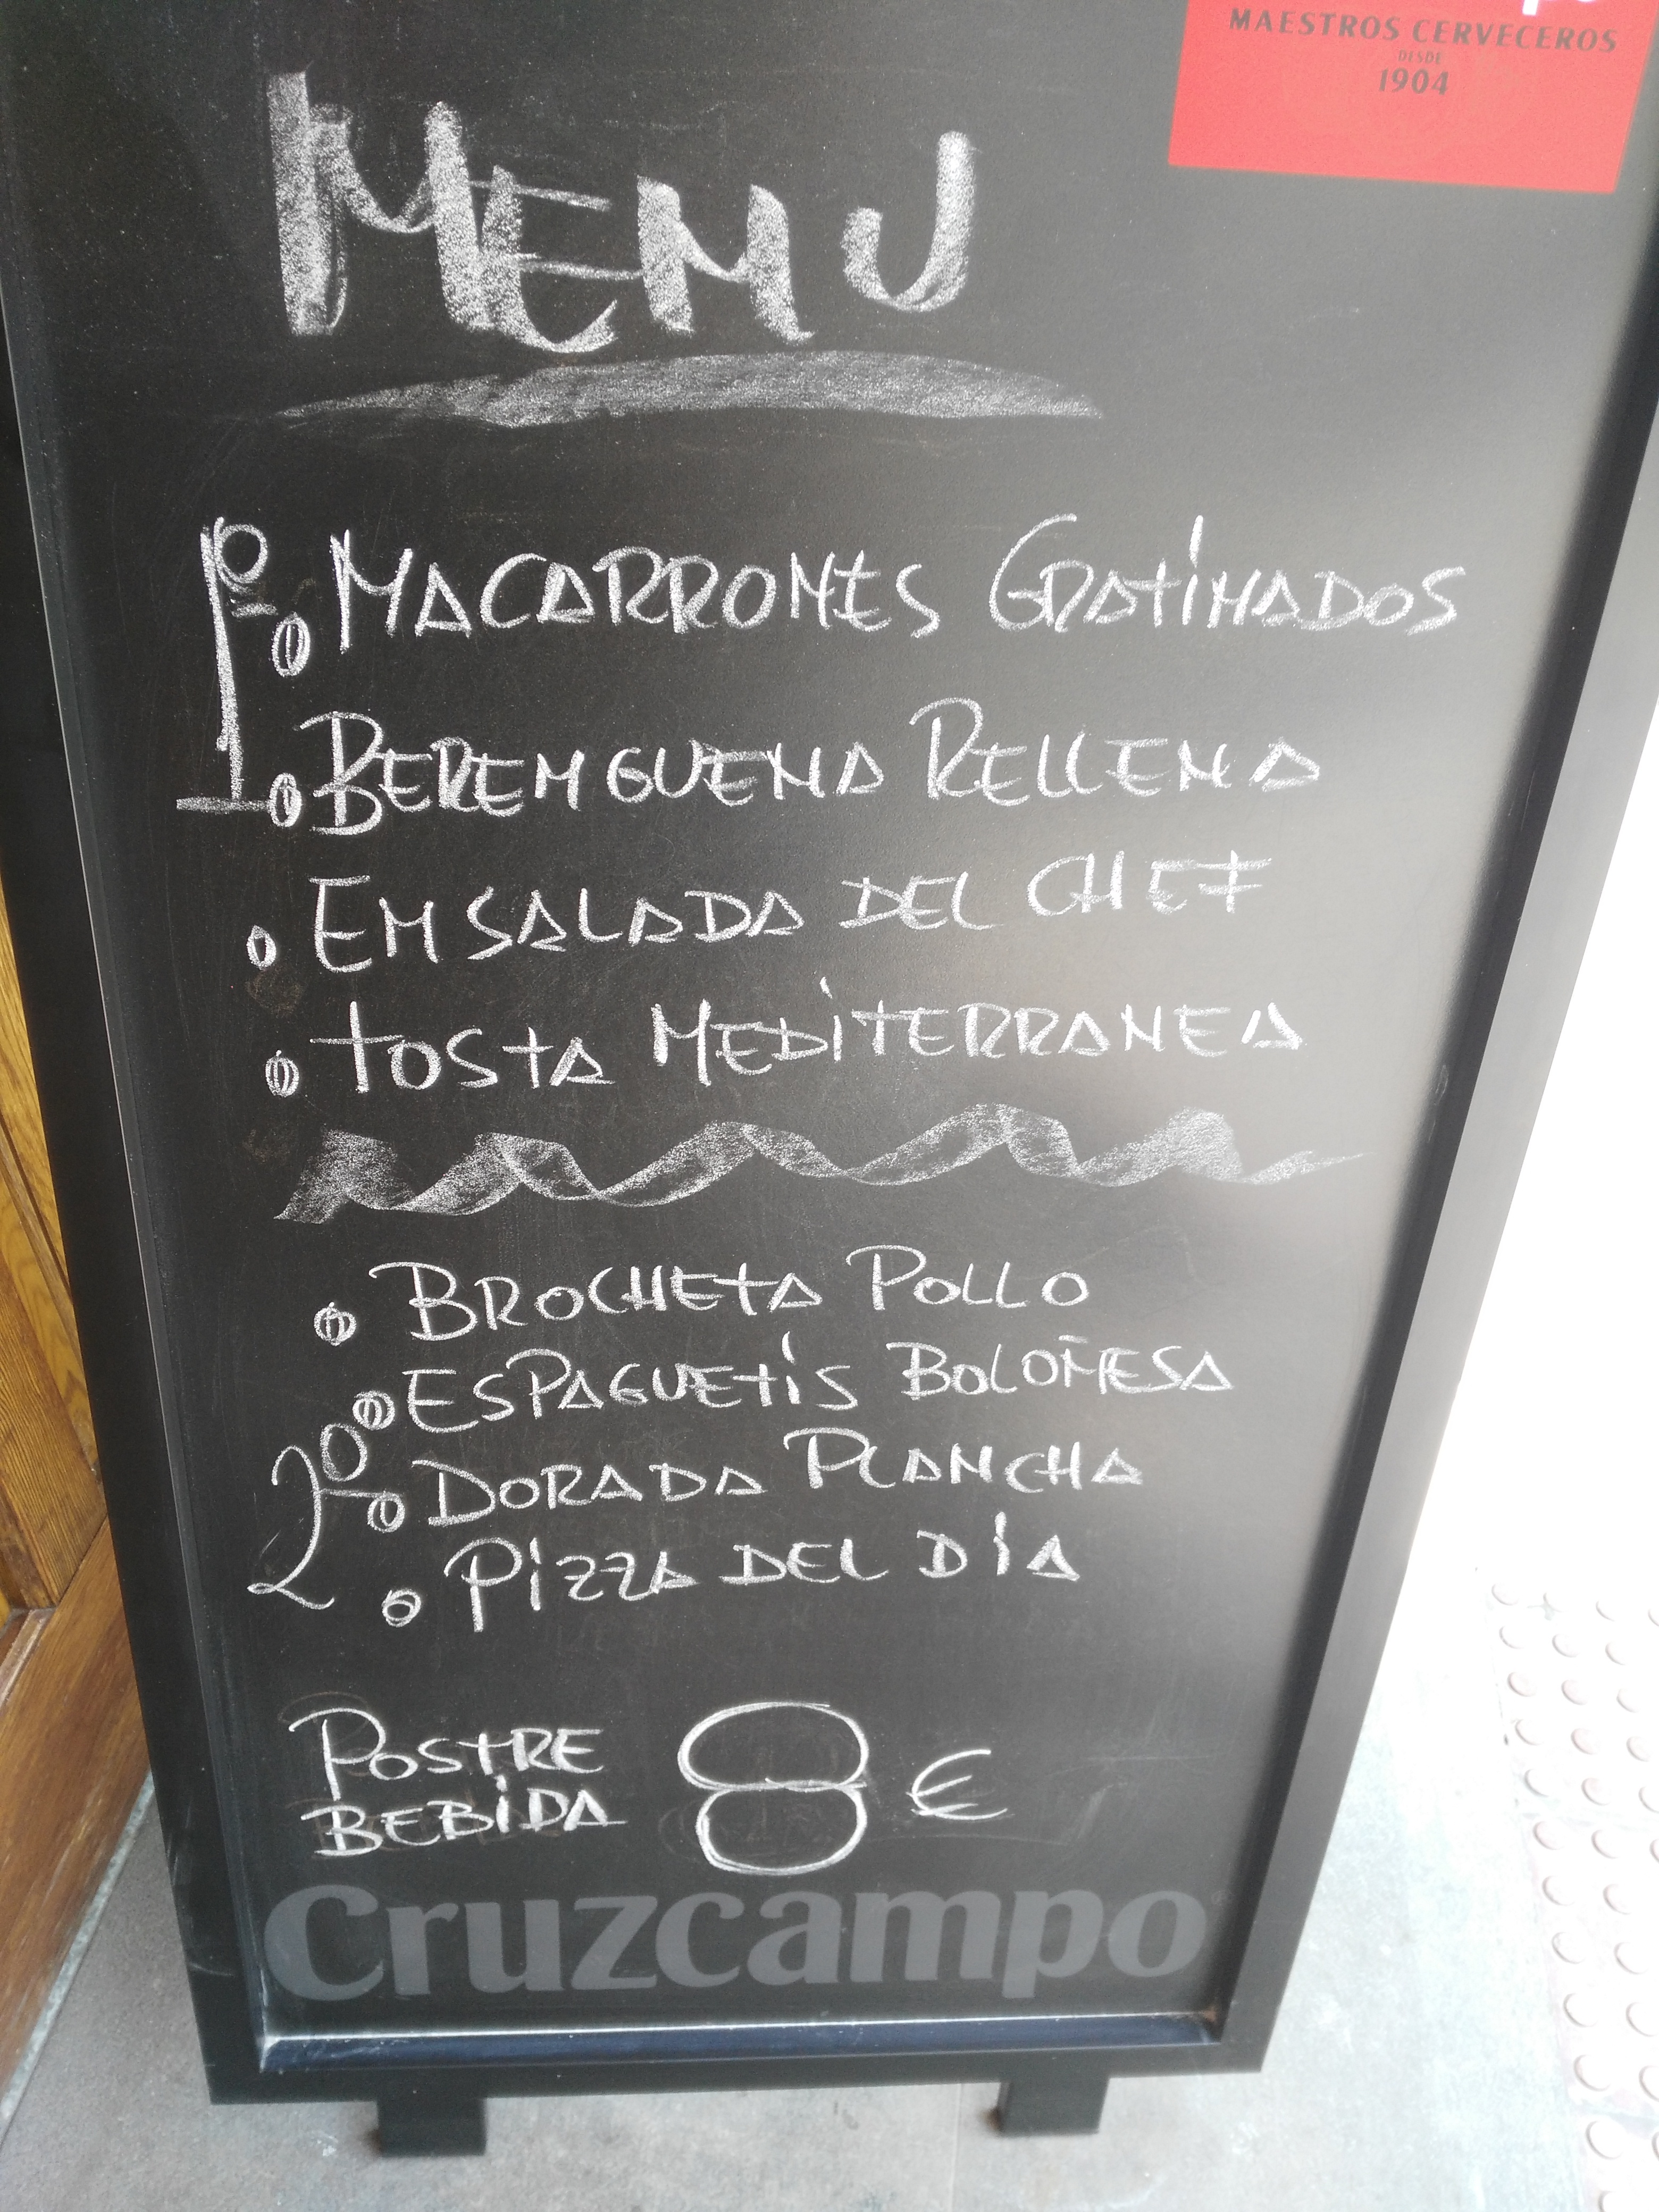 MAESTROS CERVECEROS
DESDE
1904
MENU
1º
MACARRONES GRATINADOS
BERENGUENA RELLENA
ENSALADA DEL CHEF
TOSTA MEDITERRANEA
BROCHETA POLLO
ESPAGUETIS BOLOÑESA
2º
DORADA PLANCHA
PIZZA DEL DIA
POSTRE
BEBIDA 8 €
Cruzcampo